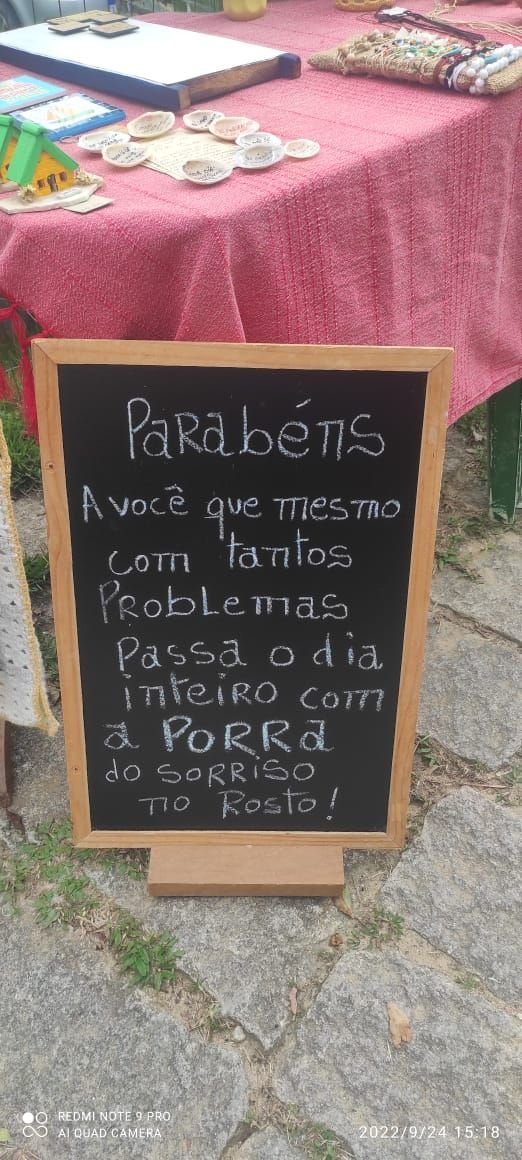 Parabéns
A você que mesmo
com tantos
Problemas
Passa o dia
inteiro com
a PORRA
do SORRISO
no Rosto!
REDMI NOTE 9 PRO
AI QUAD CAMERA
2022/9/24 15:18